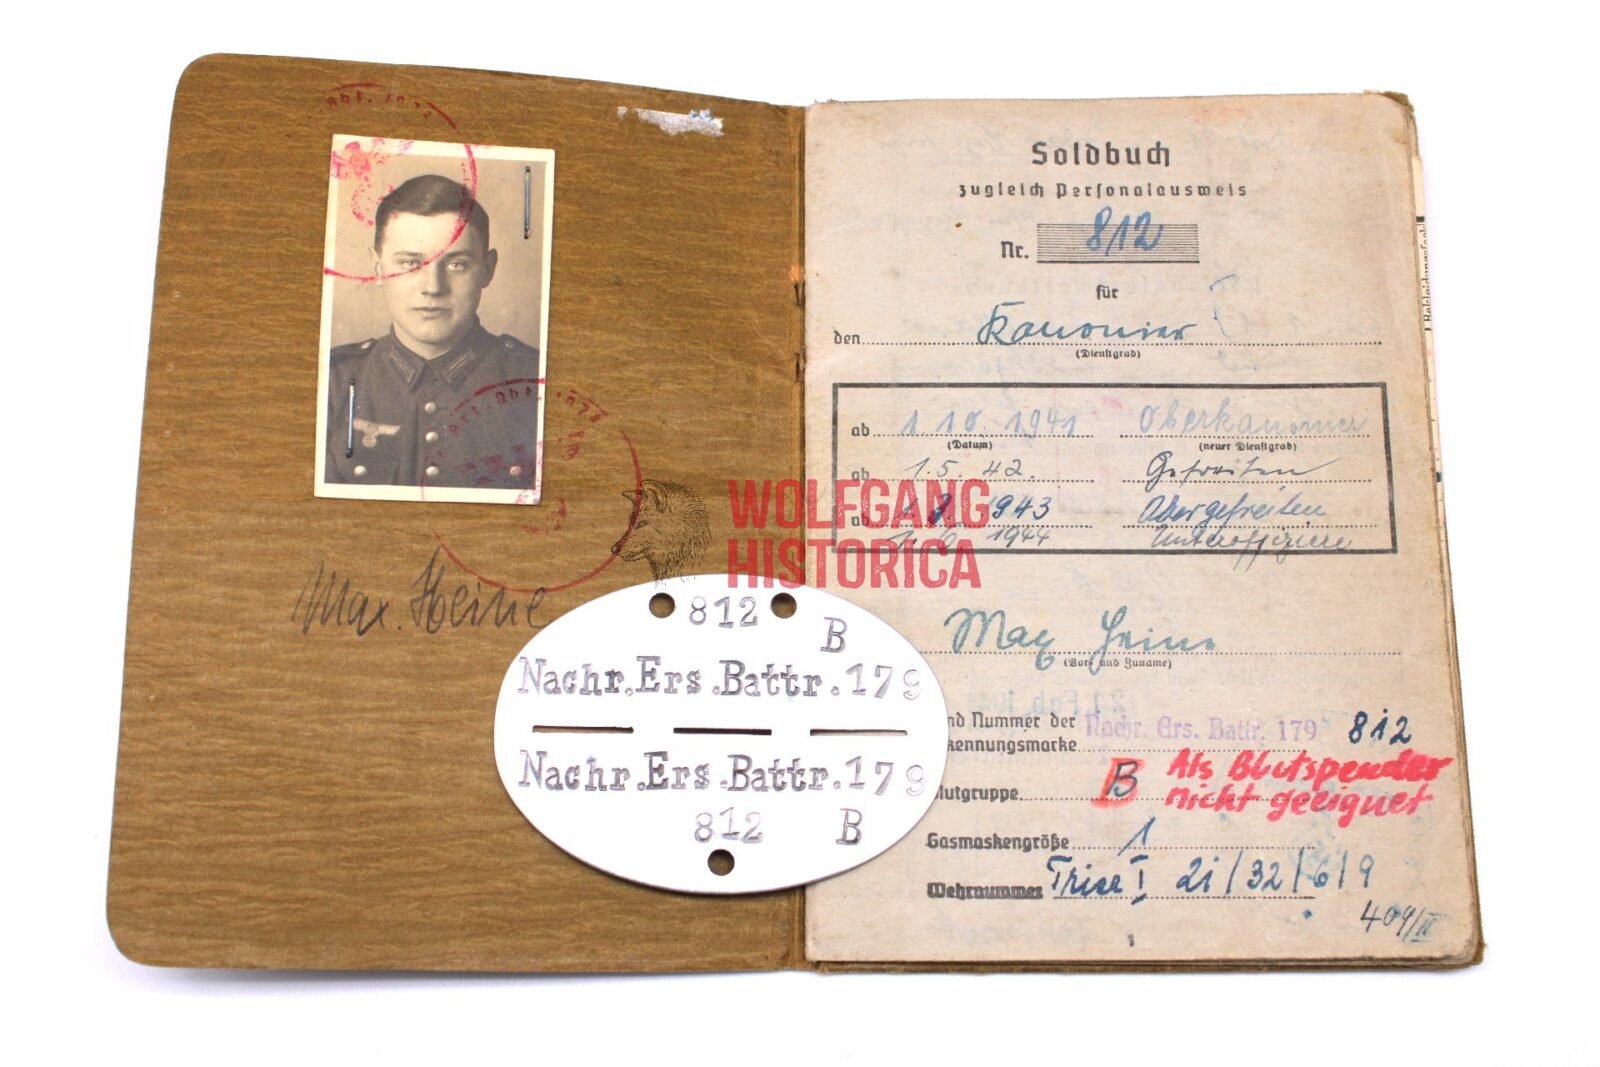 Abt.
Art. Abt.
Max Heine
Soldbuch
zugleich Personalausweis
Nr. 812
für
den Kanonier
(Dienstgrad)
ab 1.10.1941 Oberkanonier
(Datum) (neuer Dienstgrad)
ab 1.5.42. Gefreiten
ab 1943 Obergefreiten
1944 Unteroffiziere
WOLFGANG
HISTORICA
Max Heine
(Vor- und Zuname)
nd Nummer der Nachr. Ers. Battr. 179 812
kennungsmarke
lutgruppe B Als Blutspender
nicht geeignet
Gasmaskengröße 1
Wehrnummer I 21/32/6/9
409/II
812
B
Nachr.Ers.Battr.179
Nachr.Ers.Battr.179
812 B